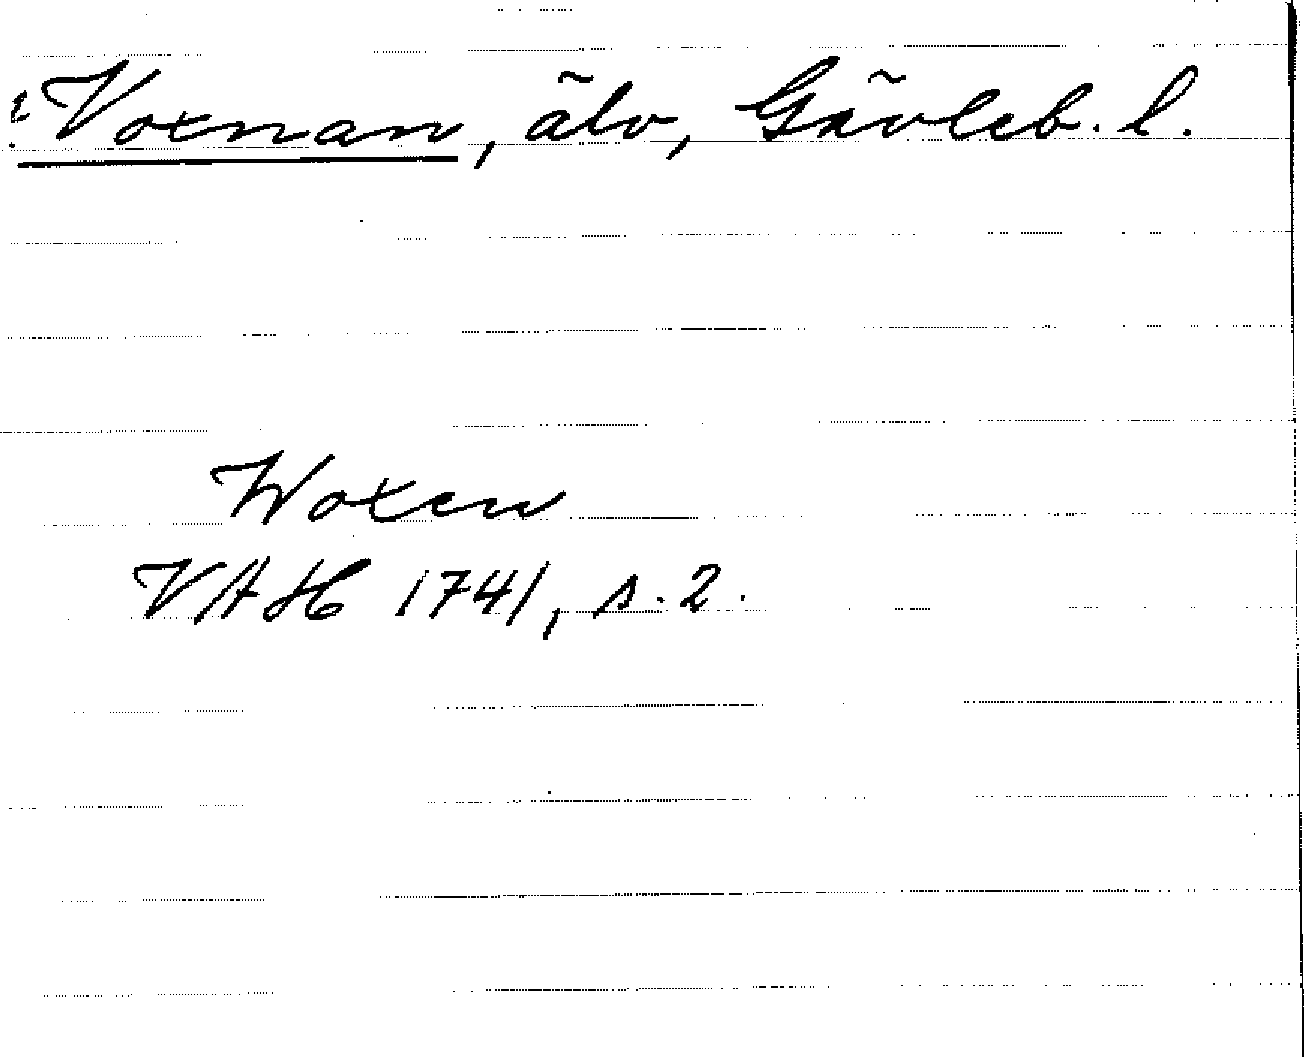 ? Voxnan, älv, Gävleb. l.
Woxen
VAH 1741, s. 2.